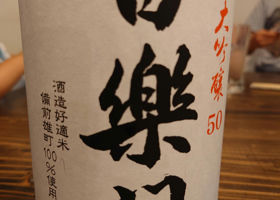 大吟醸50
百樂門
酒造好適米
備前雄町100%使用